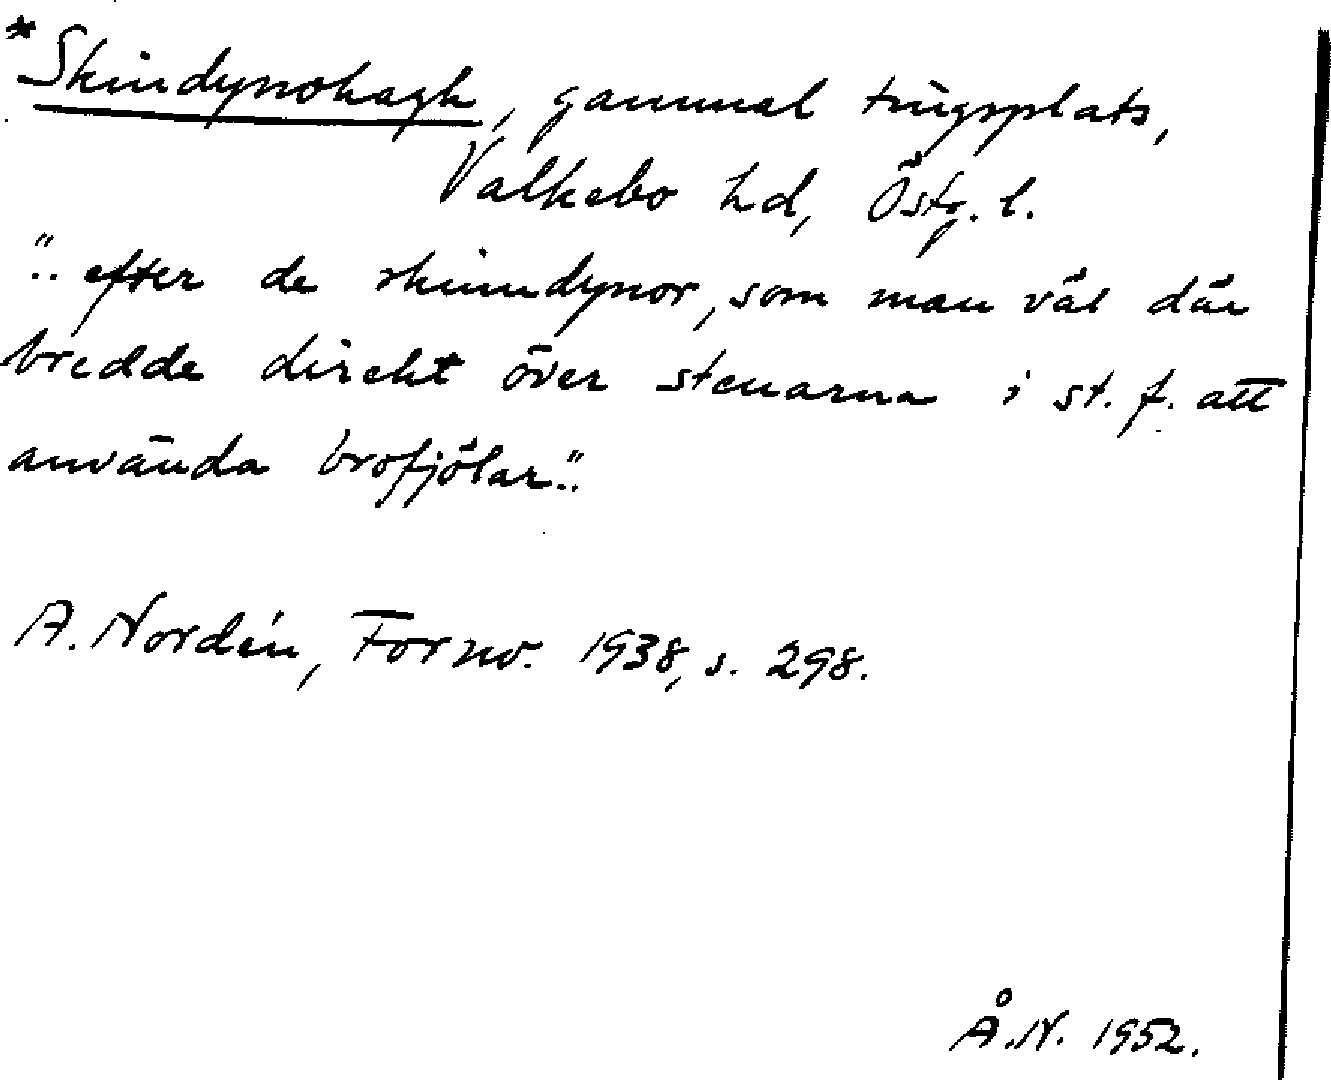 *Skindynohagh, gammal tingsplats,
Valkebo hd, Östg. l.
".. efter de skinndynor, som man väl där
bredde direkt över stenarna i st. f. att
använda brofjölar.."
A. Nordén, Fornv. 1938, s. 298.
Å.N. 1952.